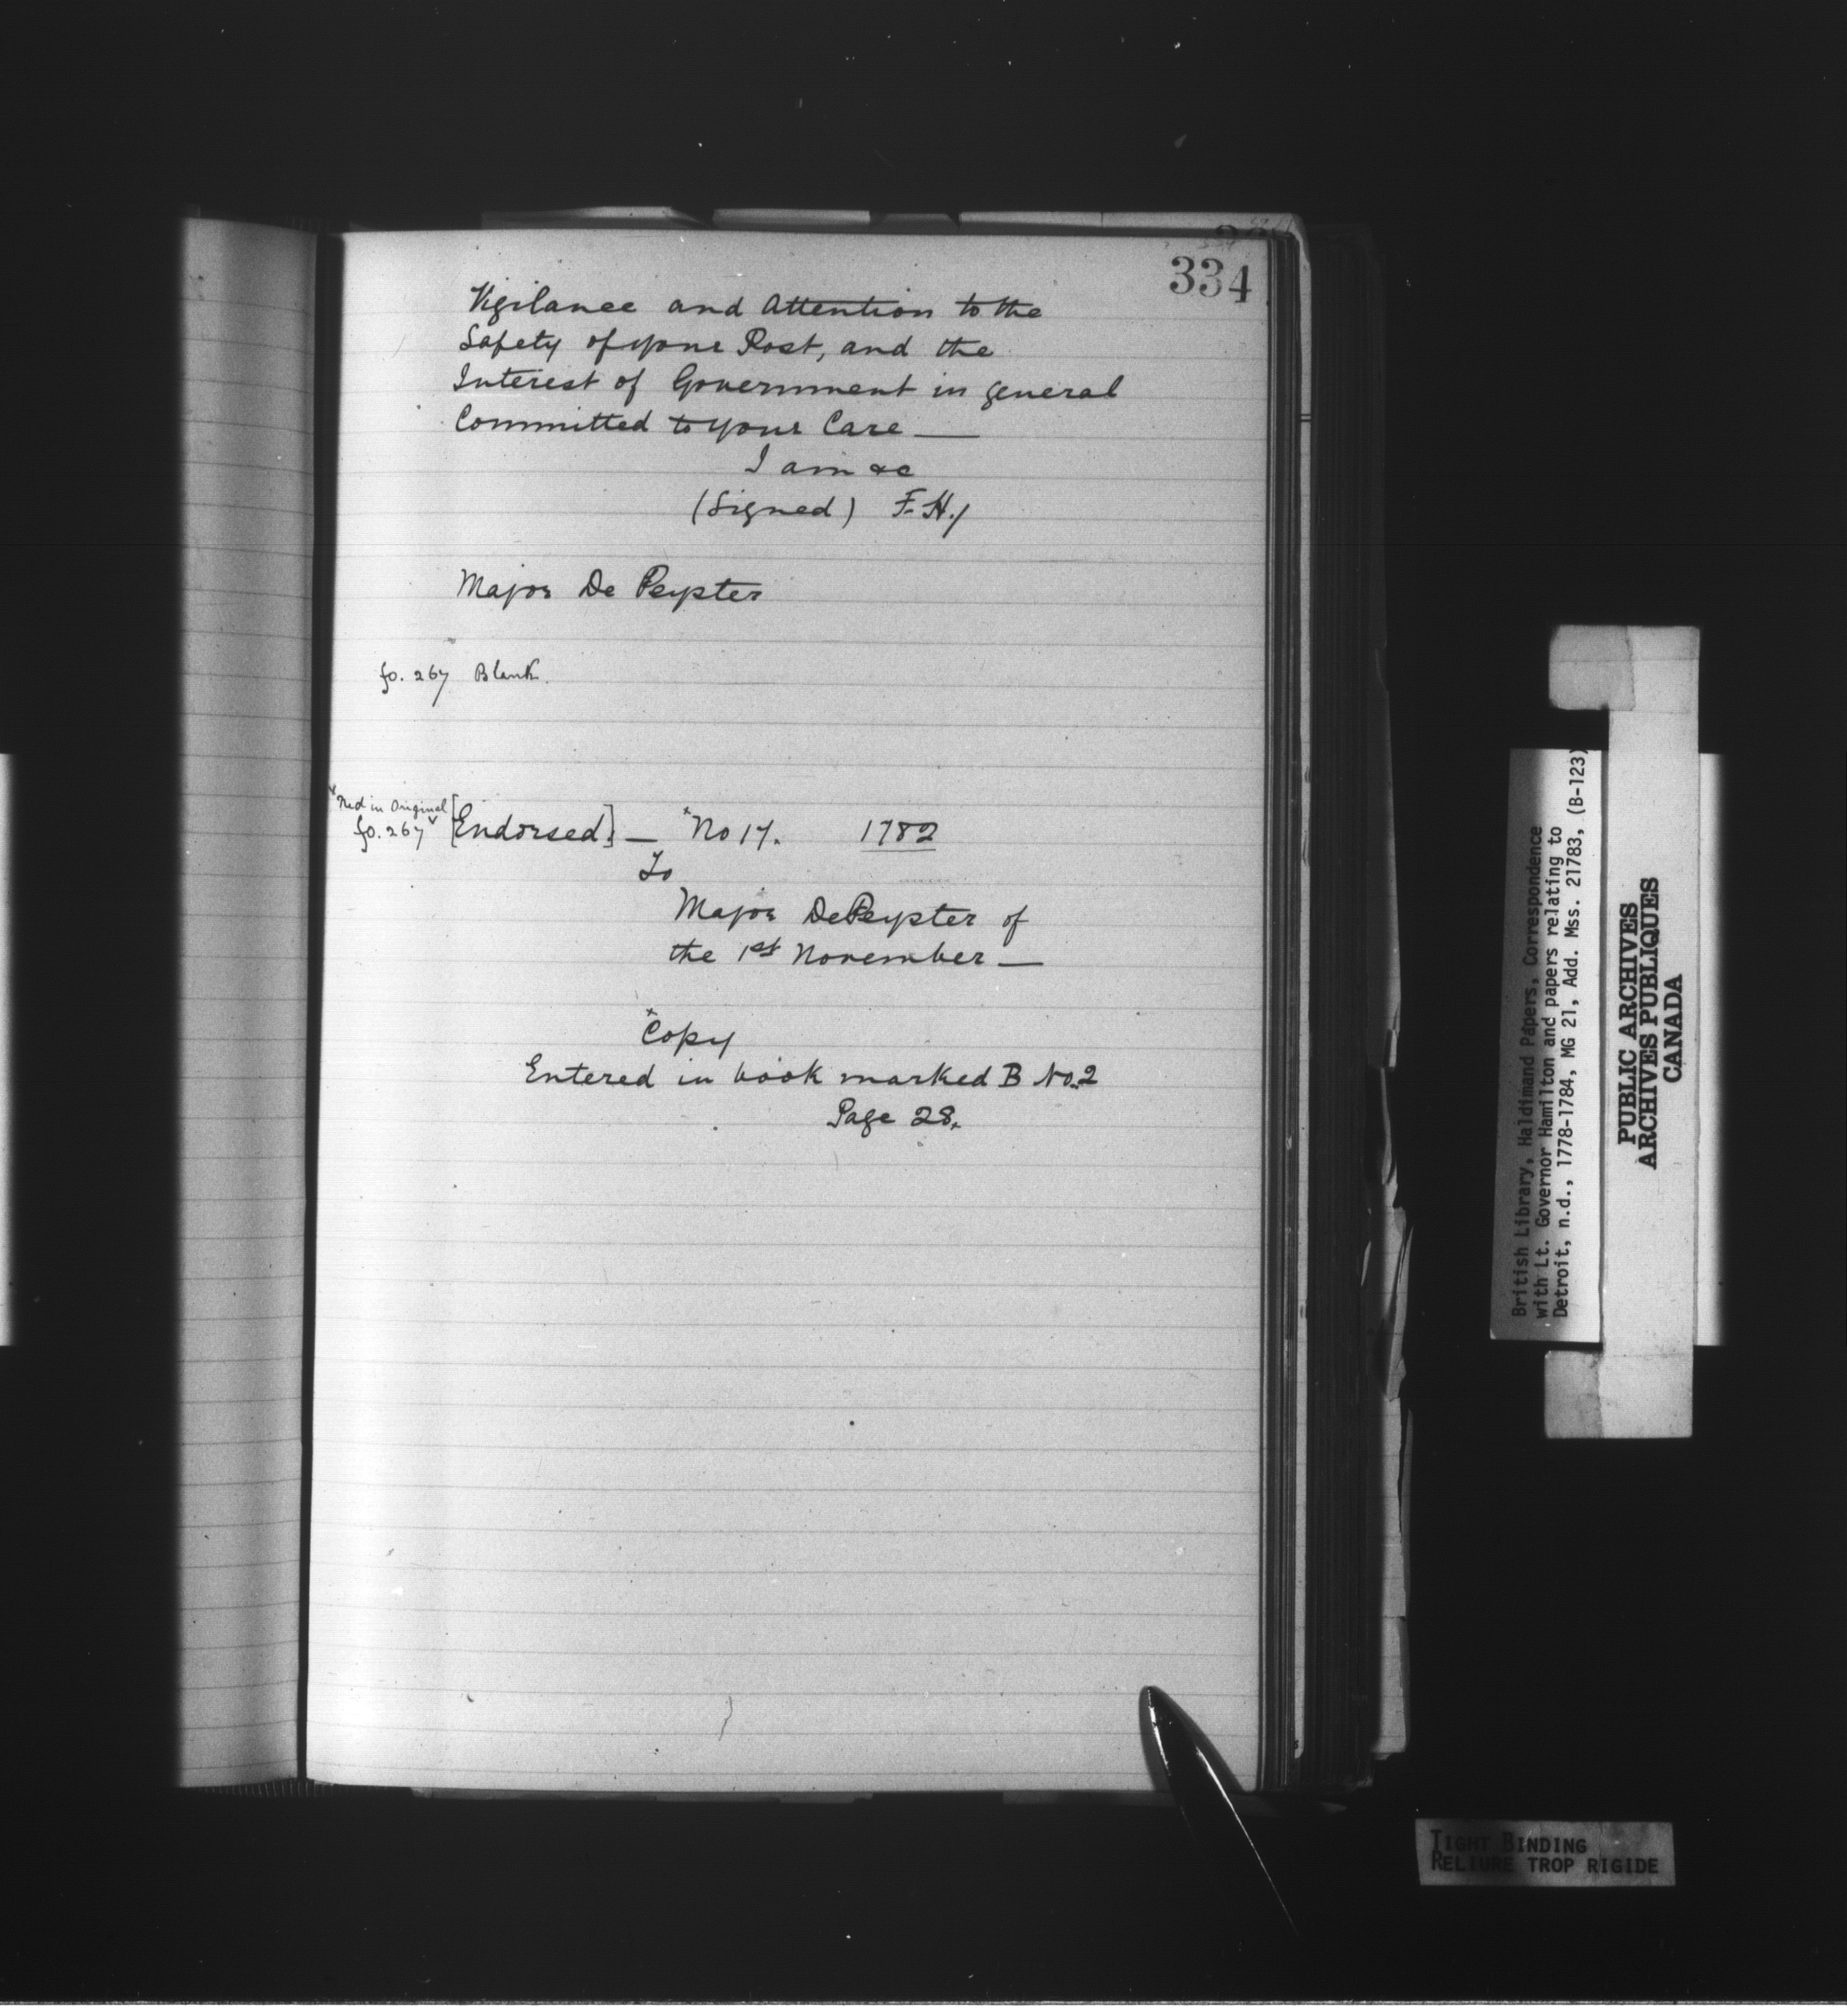 334
Vigilance and Attention to the
Safety of your Post, and the
Interest of Government in general
Committed to your Care —
I am &c
(Signed) F. H./
Major De Peyster
fo. 267 Blank.
x Red in Original
fo. 267v [Endorsed] — x No 17. 1782
To
Major DePeyster of
the 1st November —
x Copy
Entered in book marked B No. 2
Page 28.
British Library, Haldimand Papers, Correspondence
with Lt. Governor Hamilton and papers relating to
Detroit, n.d., 1778-1784, MG 21, Add. Mss. 21783, (B-123)
PUBLIC ARCHIVES
ARCHIVES PUBLIQUES
CANADA
TIGHT BINDING
RELIURE TROP RIGIDE